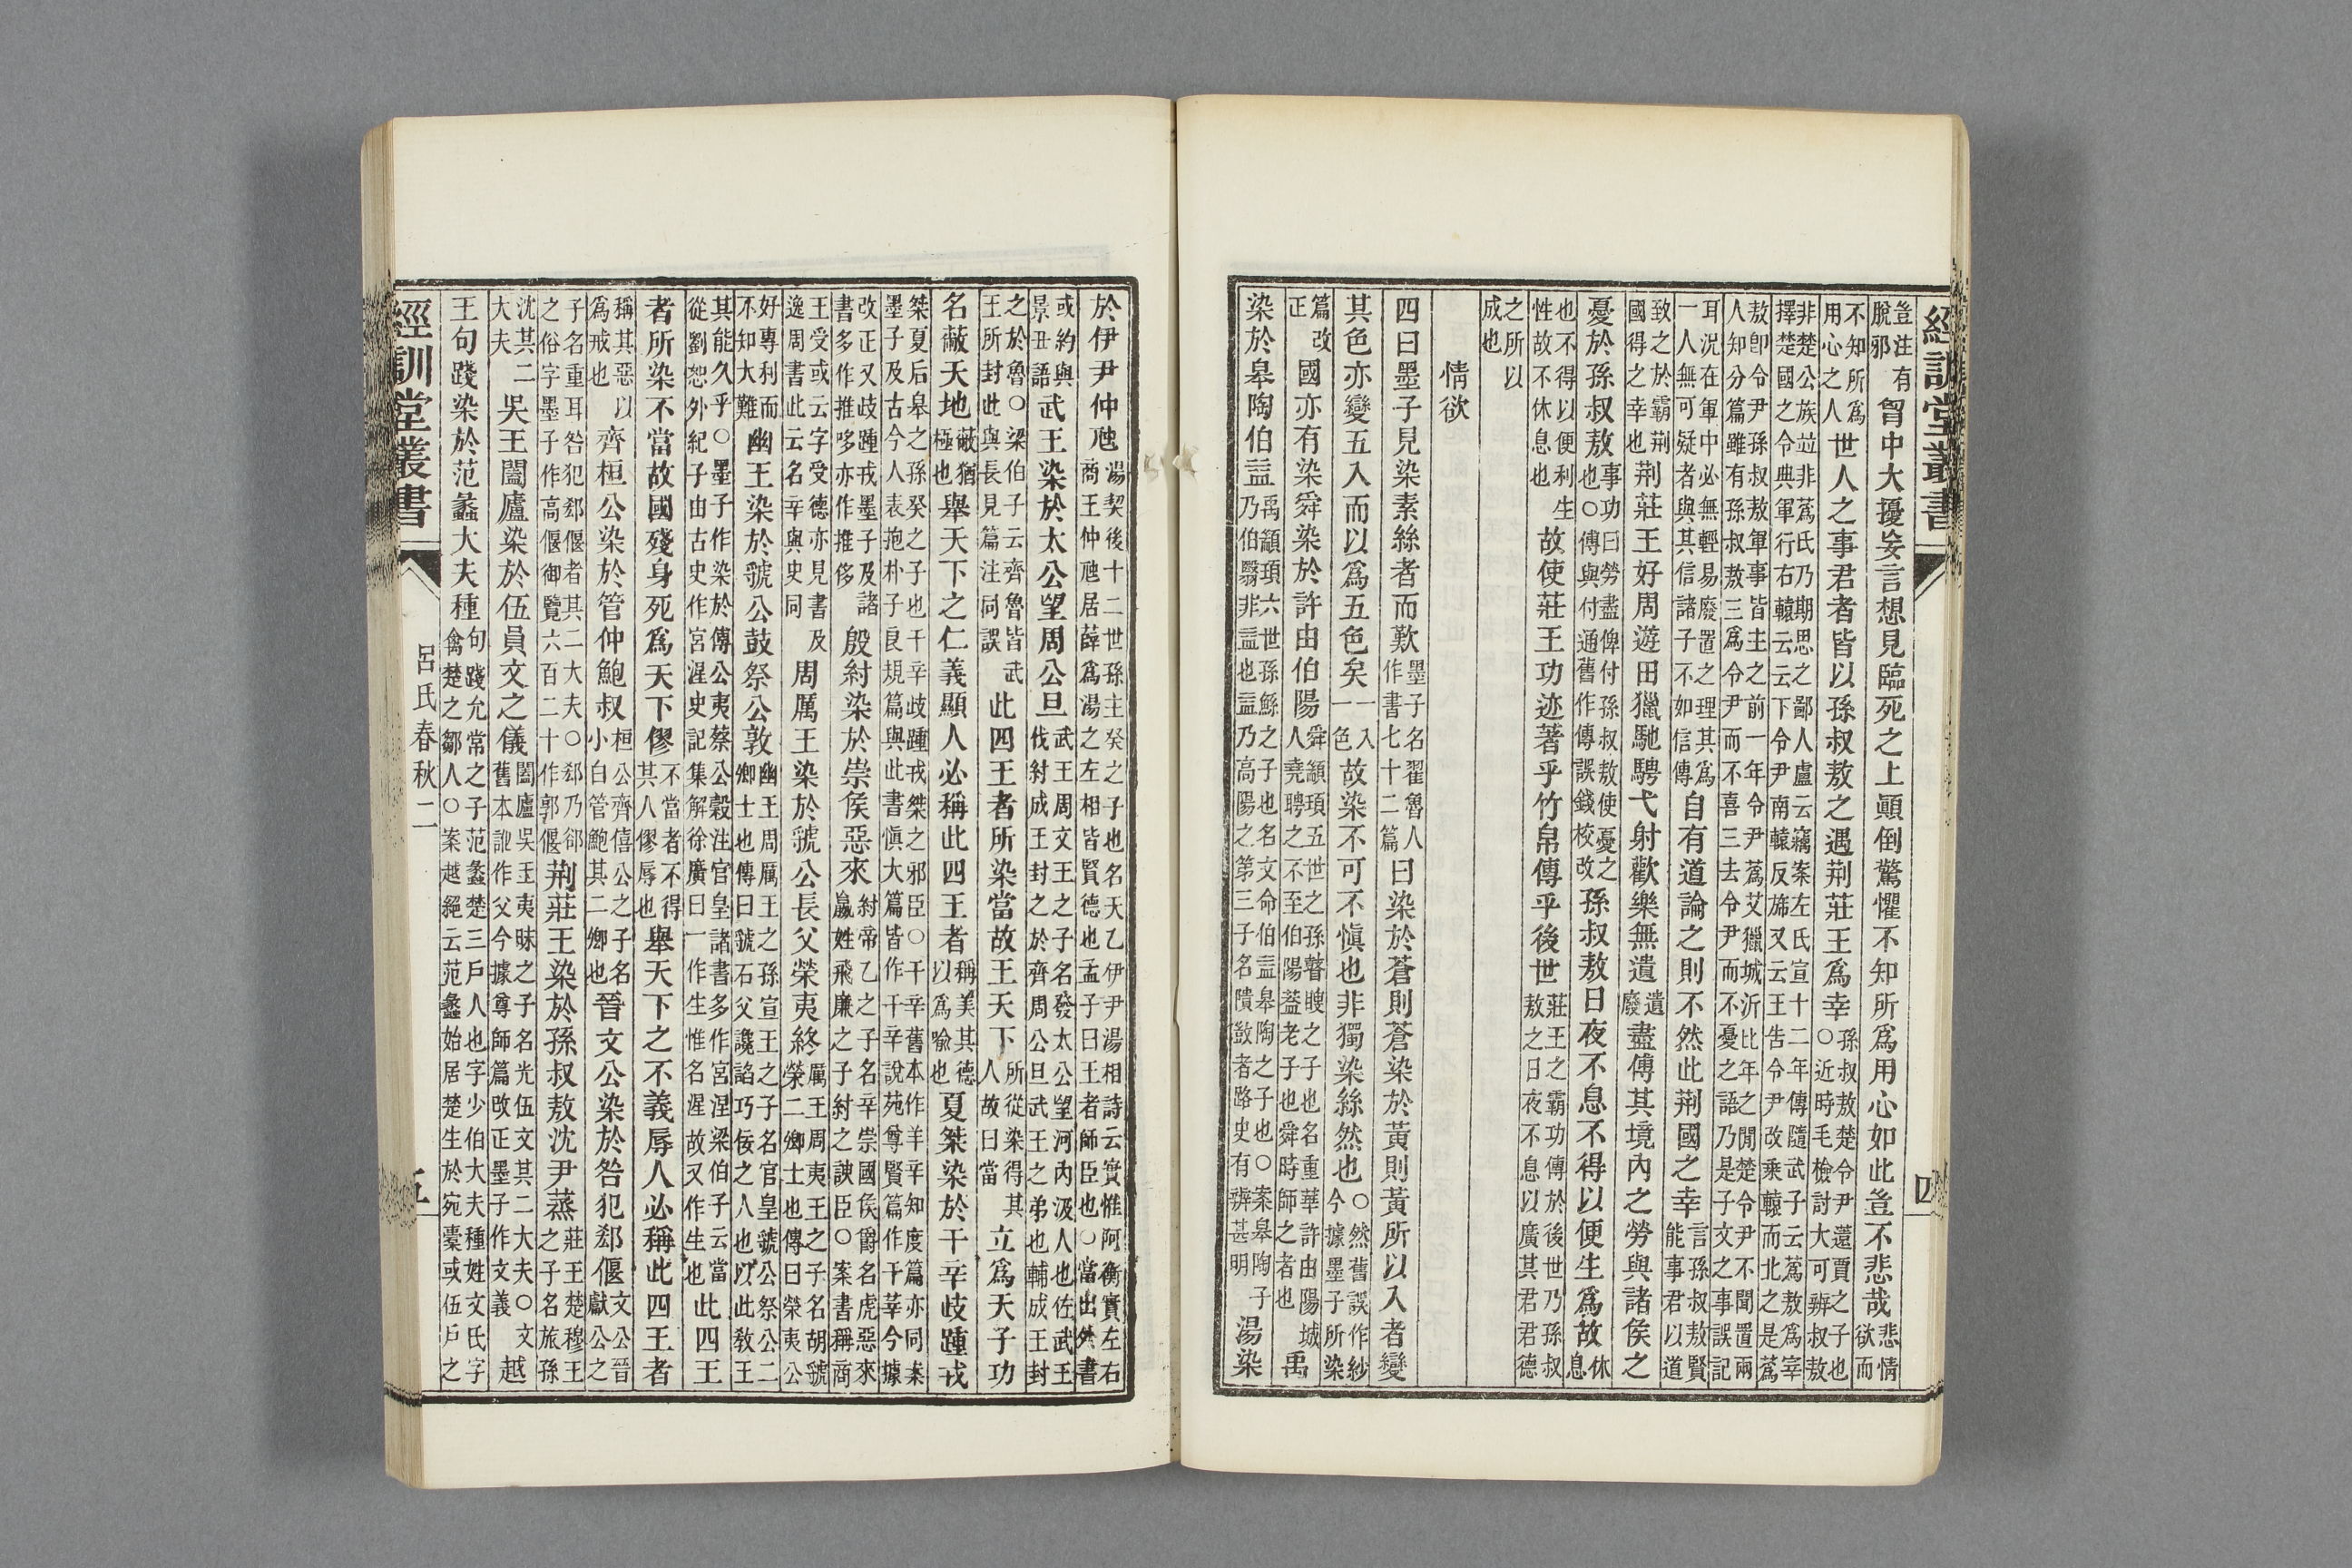 經訓堂叢書
四
豈注有脫邪胷中大擾妄言想見臨死之上顚倒驚懼不知所爲用心如此豈不悲哉悲情欲而
不知所爲用心之人世人之事君者皆以孫叔敖之遇荆莊王爲幸孫叔敖楚令尹薳賈之子也○近時毛檢討大可辨叔敖
非楚公族竝非蔿氏乃期思之鄙人盧云竊案左氏宣十二年傳隨武子云蔿敖爲宰擇楚國之令典軍行右轅云云下令尹南轅反旆又云王告令尹改乘轅而北之是蔿
敖卽令尹孫叔敖軍事皆主之前一年令尹蔿艾獵城沂比年之閒楚令尹不聞置兩人知分篇雖有孫叔敖三爲令尹而不喜三去令尹而不憂之語乃是子文之事誤記
耳況在軍中必無輕易廢置之理其爲一人無可疑者與其信諸子不如信傳自有道論之則不然此荆國之幸言孫叔敖賢能事君以道
致之於霸荆國得之幸也荆莊王好周遊田獵馳騁弋射歡樂無遺遺廢盡傳其境內之勞與諸侯之
憂於孫叔敖事功曰勞盡俾付孫叔敖使憂之也○傳與付通舊作傳誤錢校改孫叔敖日夜不息不得以便生爲故休息
也不得以便利生性故不休息也故使莊王功迹著乎竹帛傳乎後世莊王之霸功傳於後世乃孫叔敖之日夜不息以廣其君君德
之所以成也
情欲
四曰墨子見染素絲者而歎墨子名翟魯人作書七十二篇曰染於蒼則蒼染於黃則黃所以入者變
其色亦變五入而以爲五色矣一入一色故染不可不愼也非獨染絲然也○然舊誤作紗今據墨子所染
篇改正國亦有染舜染於許由伯陽舜顓頊五世之孫瞽瞍之子也名重華許由陽城人堯聘之不至伯陽蓋老子也舜時師之者也禹
染於皋陶伯益禹顓頊六世孫鯀之子也名文命伯益皋陶之子也○案皋陶子乃伯翳非益也益乃高陽之第三子名隤敳者路史有辨甚明湯染
於伊尹仲虺湯契後十二世孫主癸之子也名天乙伊尹湯相詩云實惟阿衡實左右商王仲虺居薛爲湯之左相皆賢德也孟子曰王者師臣也○當出外書
或約與景丑語武王染於太公望周公旦武王周文王之子名發太公望河內汲人也佐武王伐紂成王封之於齊周公旦武王之弟也輔成王封
之於魯○梁伯子云齊魯皆武王所封此與長見篇注同誤此四王者所染當故王天下所從染得其人故曰當立爲天子功
名蔽天地蔽猶極也舉天下之仁義顯人必稱此四王者稱美其德以爲喻也夏桀染於干辛歧踵戎
桀夏后皋之孫癸之子也干辛歧踵戎桀之邪臣○干辛舊本作羊辛知度篇亦同案墨子及古今人表抱朴子良規篇與此書愼大篇皆作干辛說苑尊賢篇作干莘今據
改正又歧踵戎墨子及諸書多作推哆亦作推侈殷紂染於崇侯惡來紂帝乙之子名辛崇國侯爵名虎惡來嬴姓飛廉之子紂之諛臣○案書稱商
王受或云字受德亦見書及逸周書此云名辛與史同周厲王染於虢公長父榮夷終厲王周夷王之子名胡虢榮二卿士也傳曰榮夷公
好專利而不知大難幽王染於虢公鼓祭公敦幽王周厲王之孫宣王之子名官皇虢公祭公二卿士也傳曰虢石父讒諂巧佞之人也以此教王
其能久乎○墨子作染於傅公夷蔡公穀注官皇諸書多作宮涅梁伯子云當從劉恕外紀子由古史作宮湦史記集解徐廣曰一作生惟名湦故又作生也此四王
者所染不當故國殘身死爲天下僇不當者不得其人僇辱也舉天下之不義辱人必稱此四王者
稱其惡以爲戒也齊桓公染於管仲鮑叔桓公齊僖公之子名小白管鮑其二卿也晉文公染於咎犯郄偃文公晉獻公之
子名重耳咎犯郄偃者其二大夫○郄乃郤之俗字墨子作高偃御覽六百二十作郭偃荆莊王染於孫叔敖沈尹蒸莊王楚穆王之子名旅孫
沈其二大夫吳王闔廬染於伍員文之儀闔廬吳王夷昧之子名光伍文其二大夫○文舊本訛作父今據尊師篇改正墨子作文義越
王句踐染於范蠡大夫種句踐允常之子范蠡楚三戶人也字少伯大夫種姓文氏字禽楚之鄒人○案越絕云范蠡始居楚生於宛橐或伍戶之
經訓堂叢書
呂氏春秋二
五